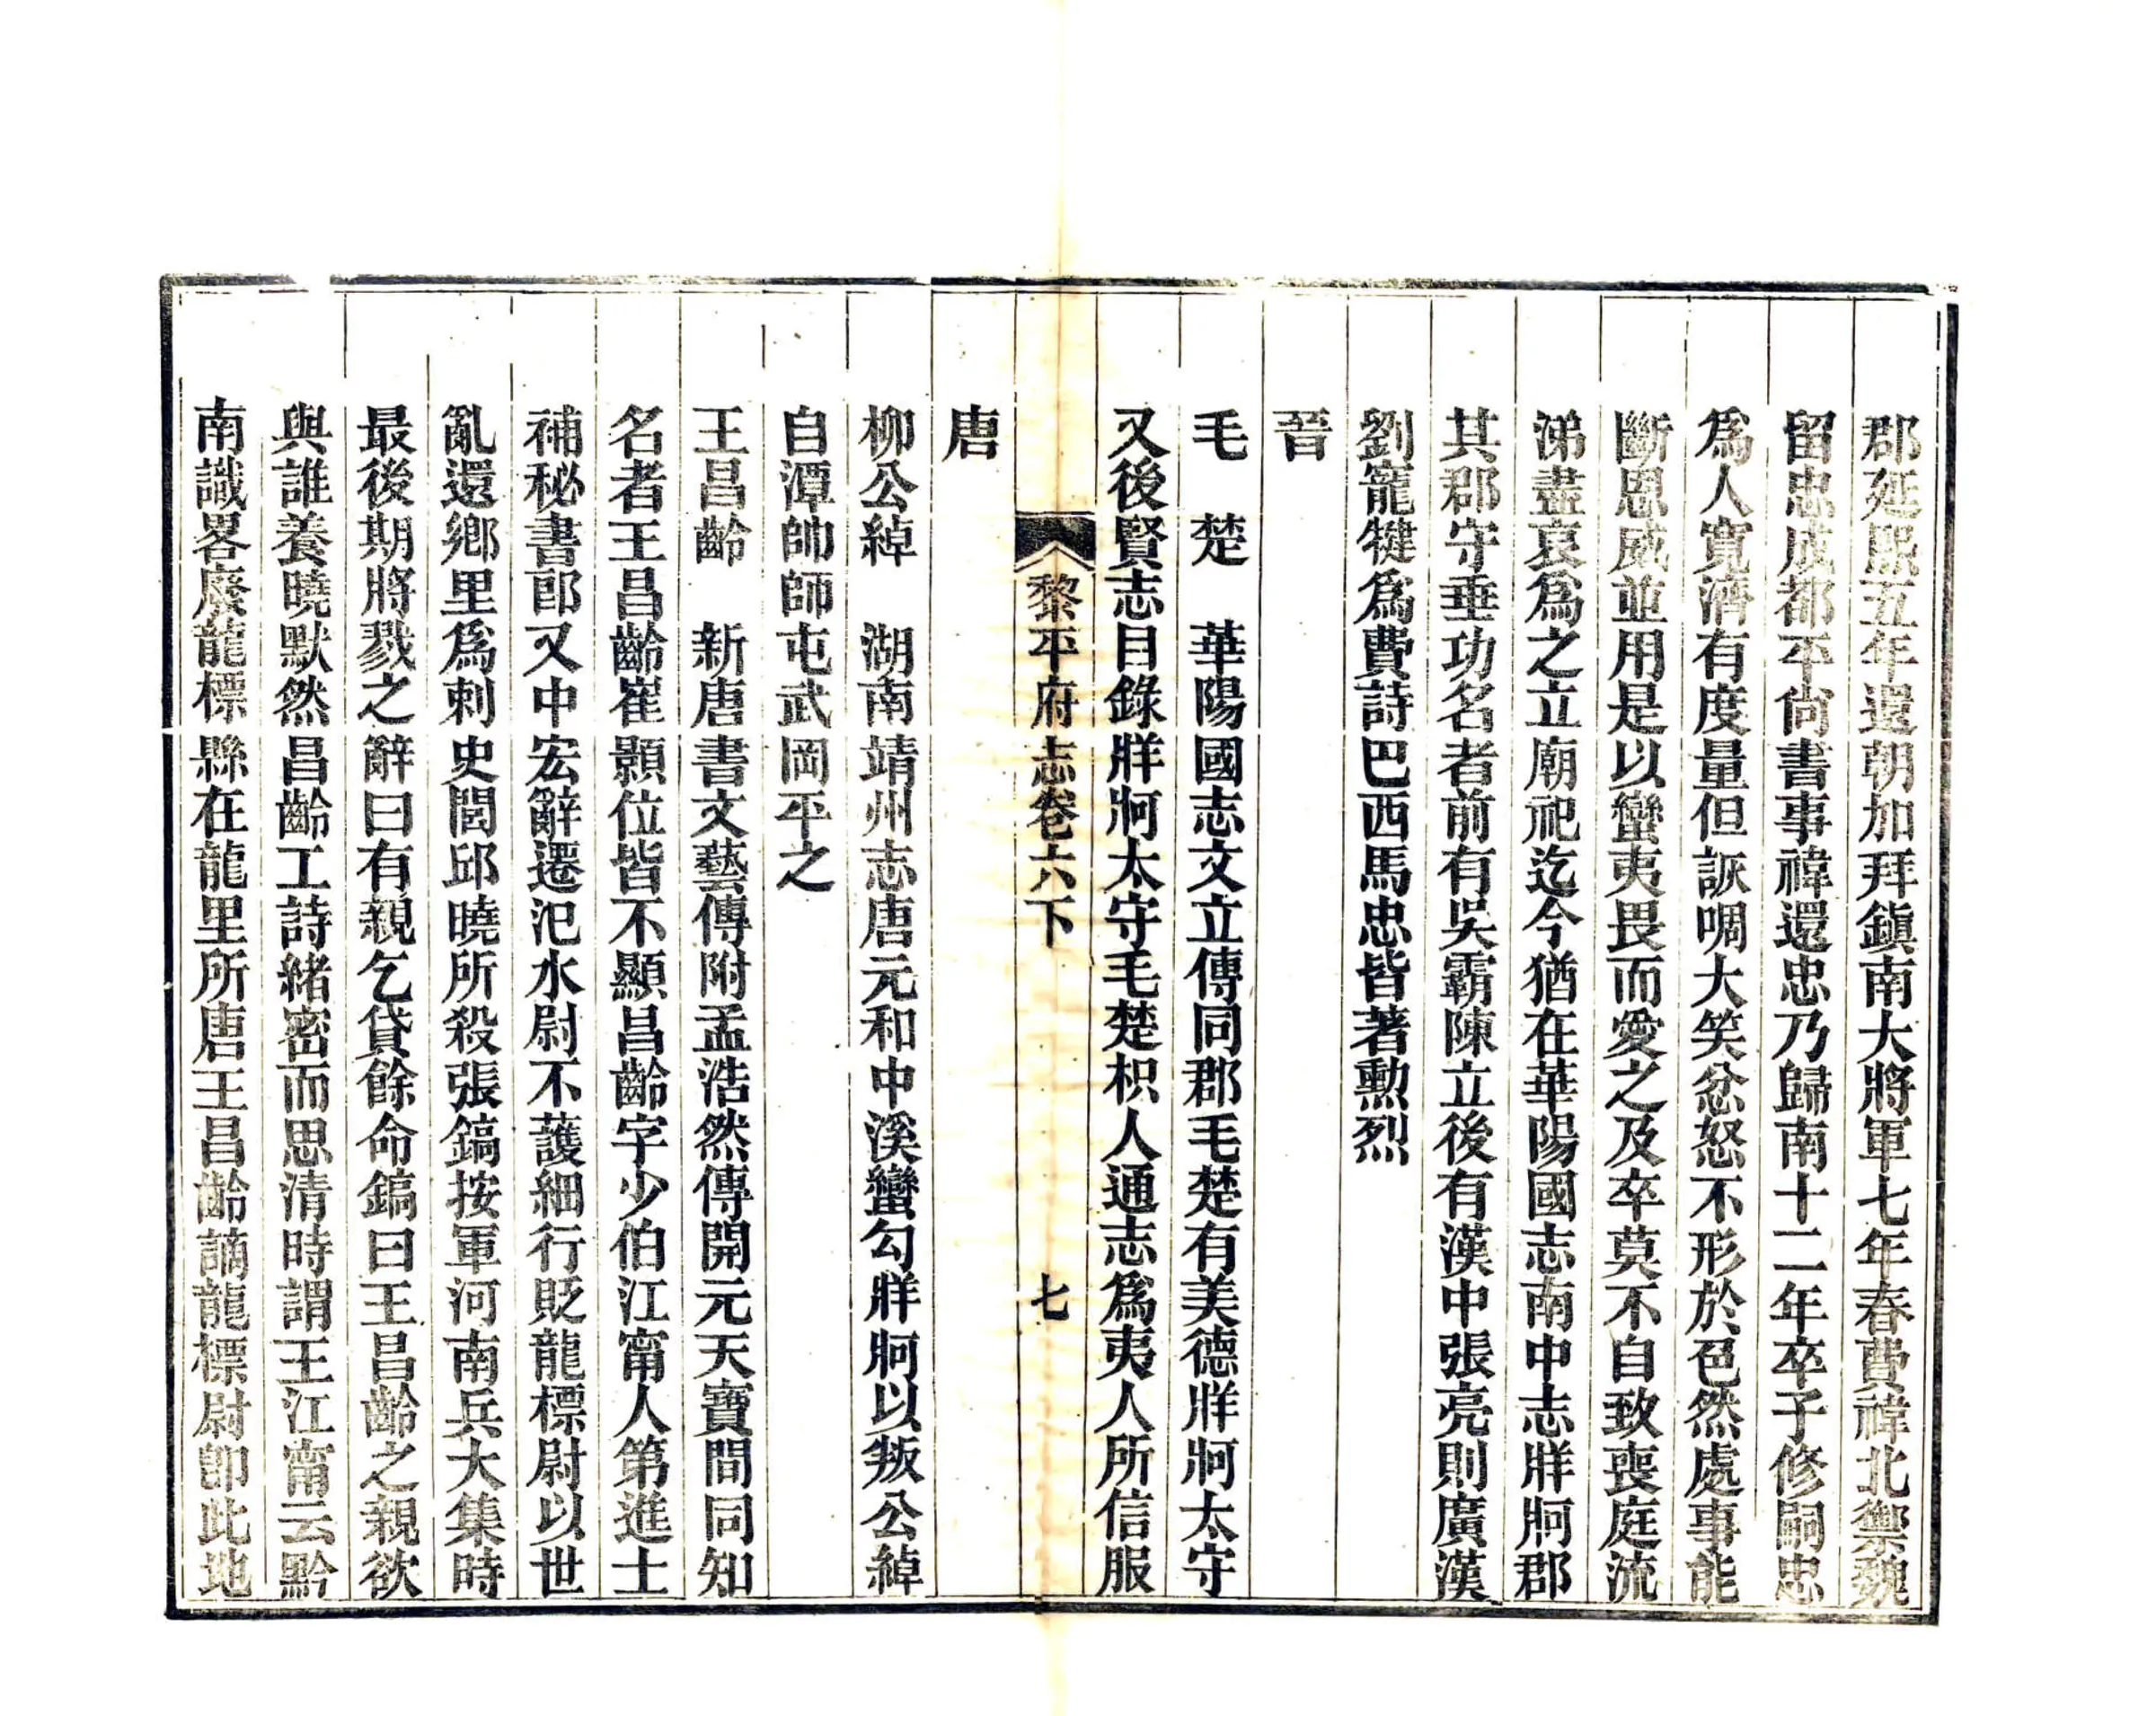 郡延熙五年還朝加拜鎭南大將軍七年春費禕北禦魏
留忠成都平尙書事禕還忠乃歸南十二年卒子修嗣忠
爲人寬濟有度量但詼啁大笑忿怒不形於色然處事能
斷恩威並用是以蠻夷畏而愛之及卒莫不自致喪庭流
涕盡哀爲之立廟祀迄今猶在華陽國志南中志牂牁郡
其郡守垂功名者前有吳霸陳立後有漢中張亮則廣漢
劉寵犍爲費詩巴西馬忠皆著勳烈
晉
毛　楚　華陽國志文立傳同郡毛楚有美德牂牁太守
又後賢志目錄牂牁太守毛楚枳人通志爲夷人所信服
黎平府志卷六下　七
唐
柳公綽　湖南靖州志唐元和中溪蠻勾牂牁以叛公綽
自潭帥師屯武岡平之
王昌齡　新唐書文藝傳附孟浩然傳開元天寶間同知
名者王昌齡崔顥位皆不顯昌齡字少伯江甯人第進士
補秘書郎又中宏辭遷汜水尉不護細行貶龍標尉以世
亂還鄉里爲刺史閭邱曉所殺張鎬按軍河南兵大集時
最後期將戮之辭曰有親乞貸餘命鎬曰王昌齡之親欲
與誰養曉默然昌齡工詩緒密而思清時謂王江甯云黔
南識畧廢龍標縣在龍里所唐王昌齡謫龍標尉卽此地